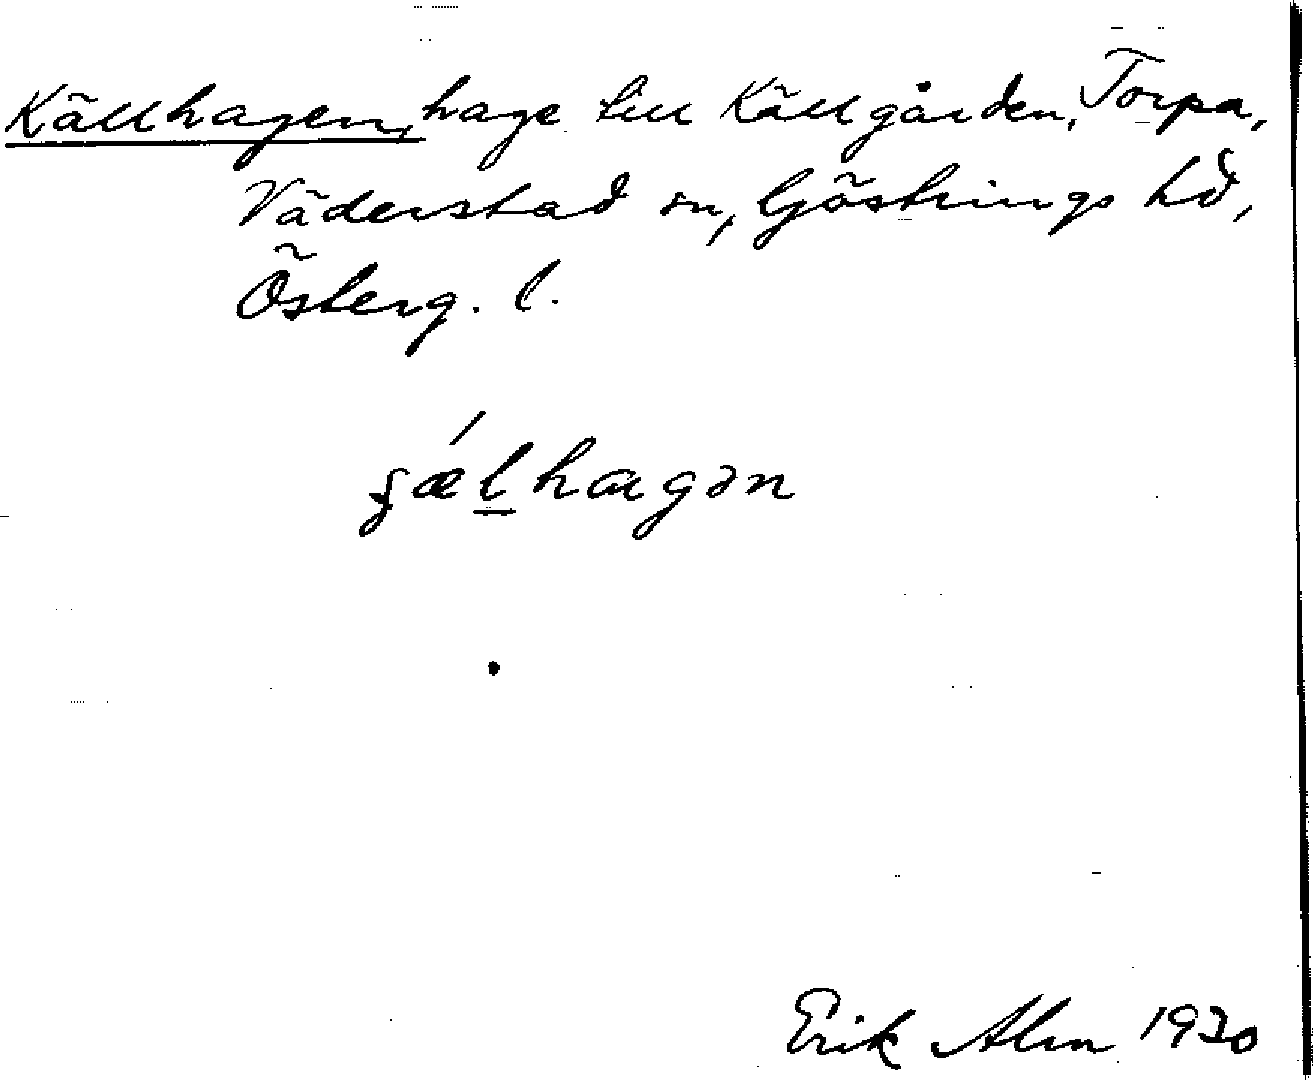 Källhagen, hage till Källgården, Torpa,
Väderstad sn, Göstrings hd,
Österg. l.
ʂǽl̲hagən
Erik Alm 1920